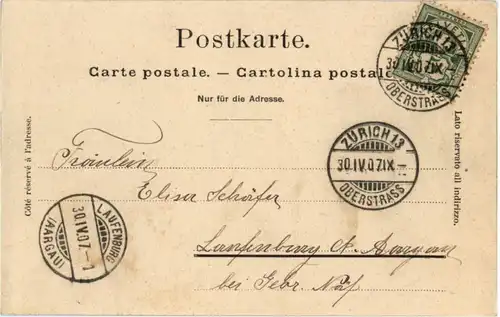 Postkarte.
Carte postale. — Cartolina postale
Nur für die Adresse.
Côté réservé à l'adresse.
Lato riservato all indirizzo.
ZÜRICH 13
30.IV.07.IX—
OBERSTRASS
ZÜRICH 13
30.IV.07.IX—
OBERSTRASS
Fräulein
Elisa Schäfer
Laufenburg Ct. Aargau
bei Gebr. Näf
LAUFENBURG
30.IV.07.-7
(AARGAU)